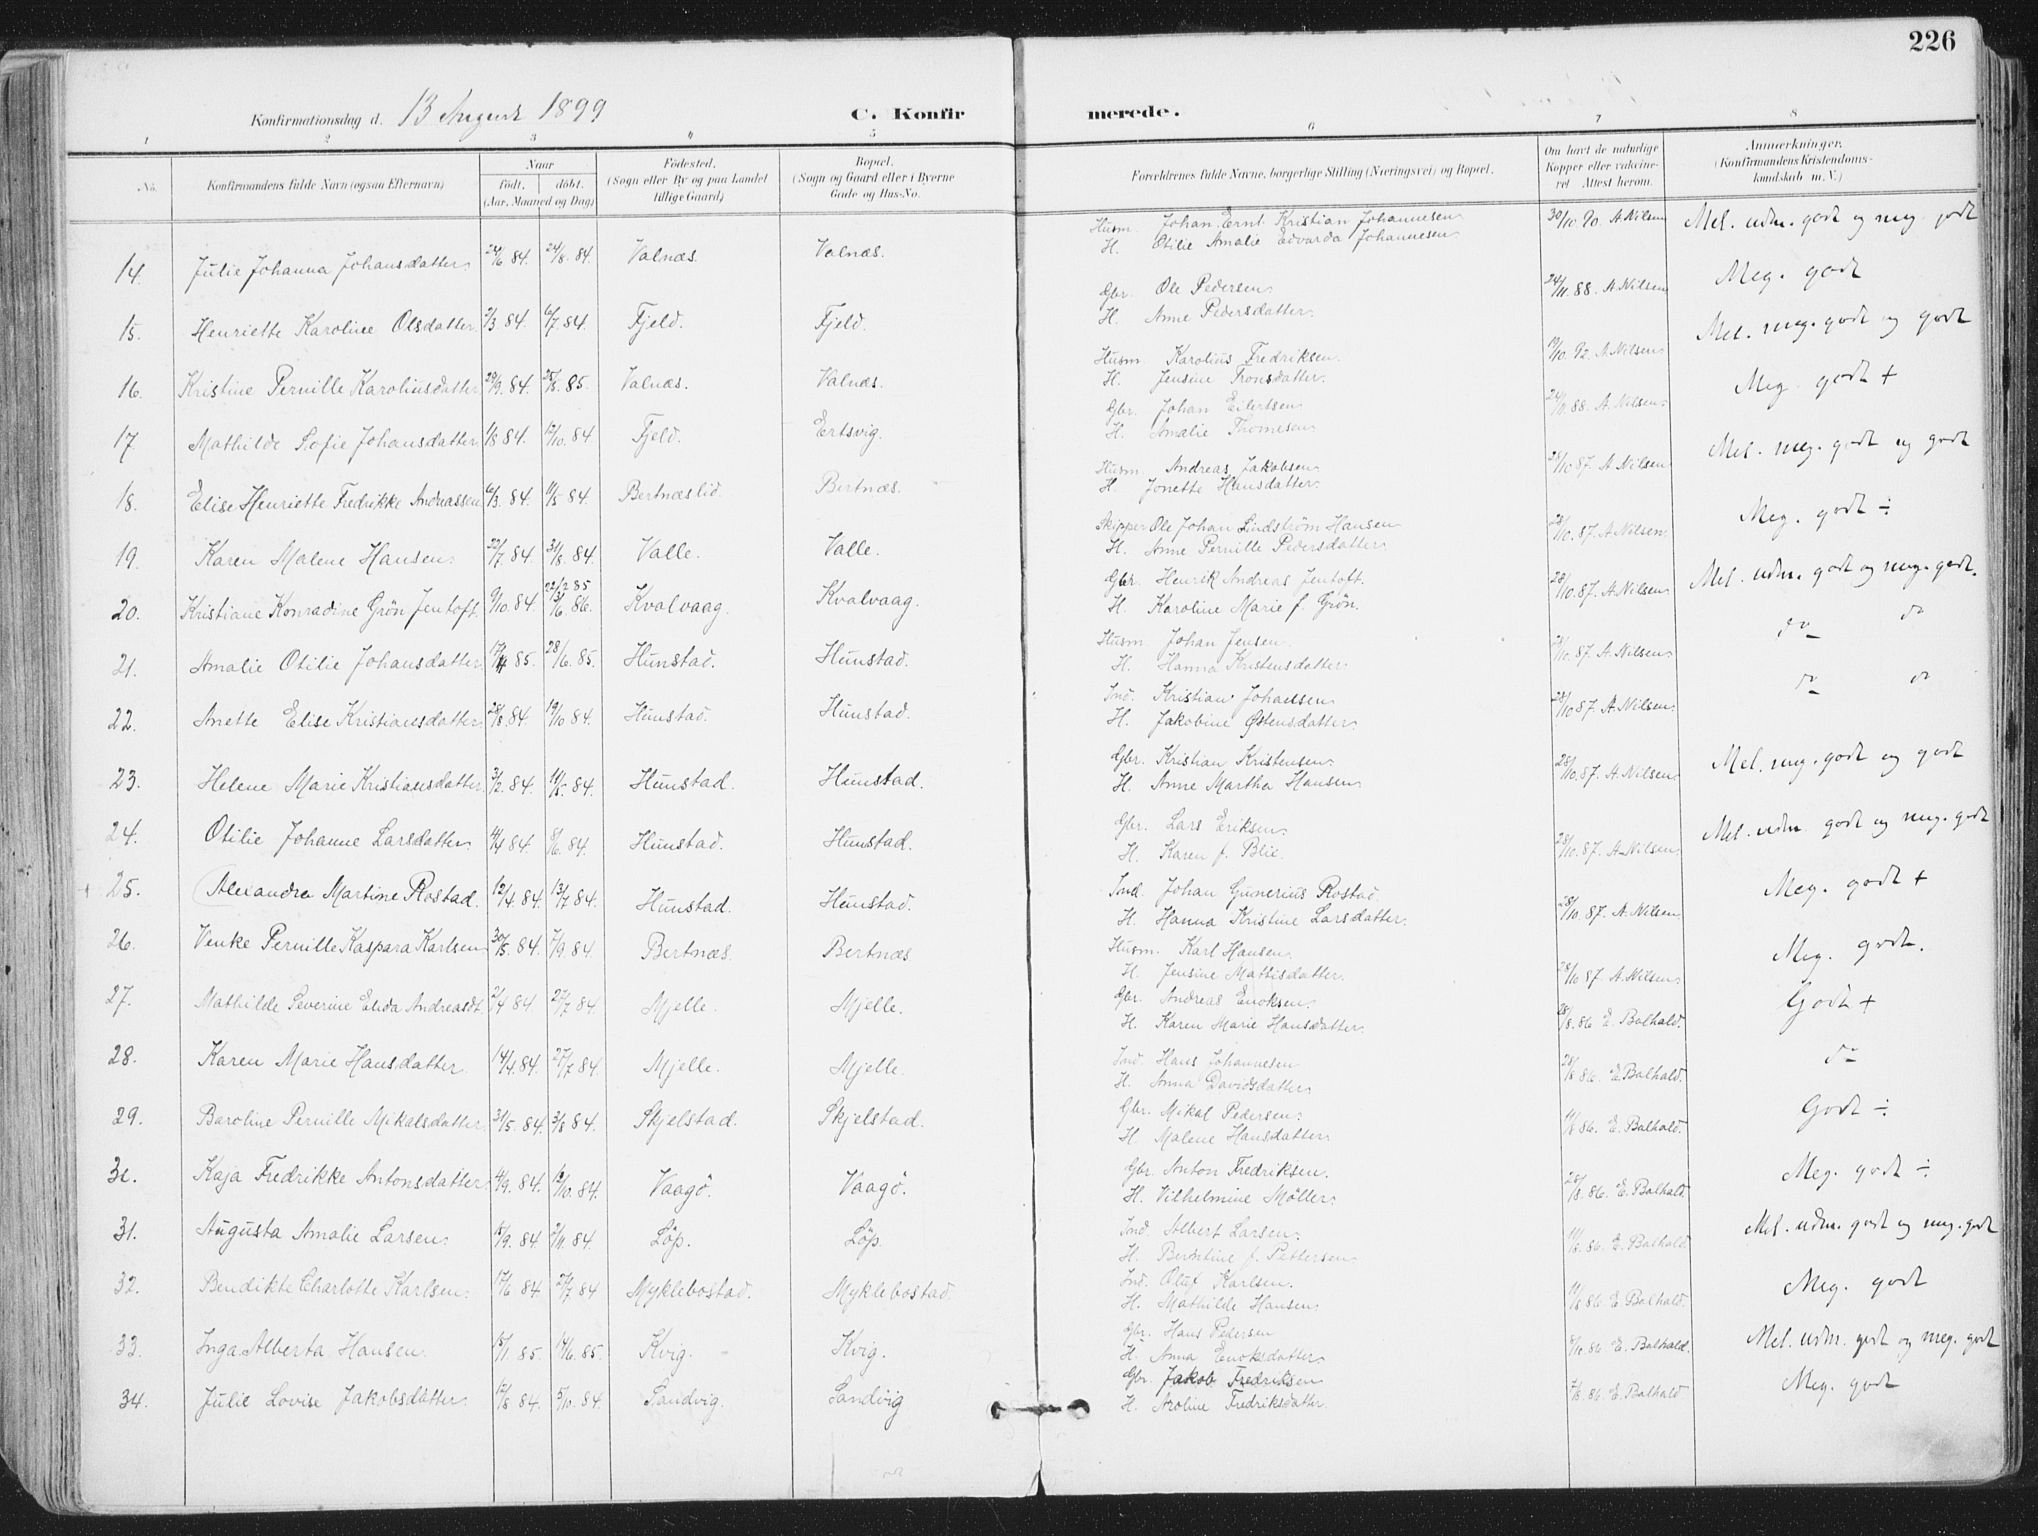 226
Konfirmationsdag d. 13 August 1899
C. Konfirmerede.
1 2 3 " 5 6 7 8
No. Konfirmandens fulde Navn (ogsaa Efternavn) Naar født, døbt. (Aar, Maaned og Dag) Födested. (Sogn eller By og paa Landet tillige Gaard) Bopæl. (Sogn og Gaard eller i Byerne Gade og Hus-No. Forældrenes fulde Navne, borgerlige Stilling (Næringsvei) og Bopæl. Om havt de naturlige Kopper eller vakcineret Attest herom. Anmærkninger. (Konfirmandens Kristendomskundskab m. V.)
14. Julie Johanna Johansdatter 24/6 84. 24/8. 84. Valnæs. Valnæs. Husm. Johan Ernt Kristian Johannesen 30/10 90. A. Nilsen Mel. udm. godt og meg. godt
H. Otilie Amalie Edvarda Johannesen
15. Henriette Karoline Olsdatter 2/3 84. 6/7 84. Fjeld. Fjeld. Gbr. Ole Pedersen 24/11. 88. A. Nilsen Meg. godt
H. Anne Pedersdatter
16. Kristine Pernille Karoliusdatter 29/9. 84. 25/8. 85. Valnæs. Valnæs. Husm. Karolius Fredriksen. 19/10. 92. A. Nilsen Mel. meg. godt og godt
H. Jensine Tronsdatter.
17. Mathilde Sofie Johansdatter 1/8 84. 12/10. 84. Fjeld. Ertsvig. Gbr. Johan Eilertsen 24/11. 88. A. Nilsen. Meg. godt +
H. Amalie Thomesen
18. Elise Henriette Fredrikke Andreassen 6/3. 84. 11/5 84. Bertnæslid. Bertnæs. Husm. Andreas Jakobsen 28/10 87. A. Nilsen Mel. meg. godt og godt
H. Jonette Hansdatter
19. Karen Malene Hansen. 22/7. 84. 31/8. 84. Valle. Valle. Skipper Ole Johan Lindström Hansen 28/10. 87. A. Nilsen. Meg. godt ÷
H. Anne Pernille Pedersdatter
20. Kristiane Konradine Grön Jentoft. 9/10. 84. 22/2 85 3/6 86. Kvalvaag. Kvalvaag. Gbr. Henrik Andreas Jentoft. 28/10. 87. A. Nilsen Mel. udm. godt og meg. godt.
H. Karoline Marie f. Grön.
21. Amalie Otilie Johansdatter 17/4 85. 28/6. 85. Hunstad. Hunstad. Husm. Johan Jensen. 28/10. 87. A. Nilsen. do do
H. Hanna Kristensdatter
22. Anette Elise Kristiansdatter 28/8. 84 19/10 84. Hunstad. Hunstad. Ind. Kristian Johansen 28/10 87. A. Nilsen. do do
H. Jakobine Østensdatter
23. Helene Marie Kristiansdatter 3/2. 84. 11/5. 84. Hunstad. Hunstad. Gbr. Kristian Kristensen. 28/10. 87. A. Nilsen Mel. meg. godt og godt
H. Anne Martha Hansen
24. Otilie Johanne Larsdatter. 14/4 84. 8/6. 84. Hunstad. Hunstad. Gbr. Lars Eriksen. 28/10. 87. A. Nilsen Mel. udm. godt og meg. godt
H. Karen f. Blix.
25. Alexandra Martine Rostad. 12/4. 84. 13/7 84. Hunstad. Hunstad. Ind. Johan Gunerius Rostad. 28/10. 87. A. Nilsen Meg. godt +
H. Hanna Kristine Larsdatter.
26. Venke Pernille Kaspara Karlsen 30/5. 84. 7/9. 84 Bertnæs. Bertnæs Husm. Karl Hansen. 28/10 87. A. Nilsen Meg. godt.
H. Jensine Mathisdatter.
27. Mathilde Severine Elida Andreasdt. 2/4 84. 27/7 84. Mjelle. Mjelle. Gbr. Andreas Enoksen. 28/8. 86 E. Balhald. Godt +
H. Karen Marie Hansdatter
28. Karen Marie Hansdatter 14/4. 84. 27/7 84. Mjelle. Mjelle. Ind. Hans Johannesen 28/8 86. E. Balhald. do
H. Anna Davidsdatter
29. Baroline Pernille Mikalsdatter 31/5. 84. 3/8 84. Skjelstad. Skjelstad. Gbr. Mikal Pedersen. 11/8 86. E. Balhald. Godt ÷
H. Malene Hansdatter
30. Kaja Fredrikke Antonsdatter 4/9. 84. 12/10. 84. Vaagö. Vaagö. Gbr. Anton Fredriksen. 28/8. 86. E. Balhald Meg. godt ÷
H. Vilhelmine Möller.
31. Augusta Amalie Larsen. 15/9. 84 2/11. 84. Löp. Löp. Ind. Albert Larsen. 11/8. 86. E. Balhald Mel. udm. godt og meg. godt
H. Berntine f. Pettersen
32. Bendikte Charlotte Karlsen. 17/6 84 27/7 84 Myklebostad. Myklebostad. Ind. Oluf Karlsen. 11/8 86. E. Balhald. Meg. godt
H. Mathilde Hansen
33. Inga Alberta Hansen. 15/1. 85. 14/6. 85. Kvig. Kvig. Gbr. Hans Pedersen 8/10. 86. E. Balhald. Mel. udm. godt og meg. godt
H. Anna Enoksdatter.
34. Julie Lovise Jakobsdatter. 12/8 84. 5/10. 84. Sandvig. Sandvig Gbr. Jakob Fredriksen 7/8. 86. E. Balhald Meg. godt
H. Aroline Fredriksdatter.